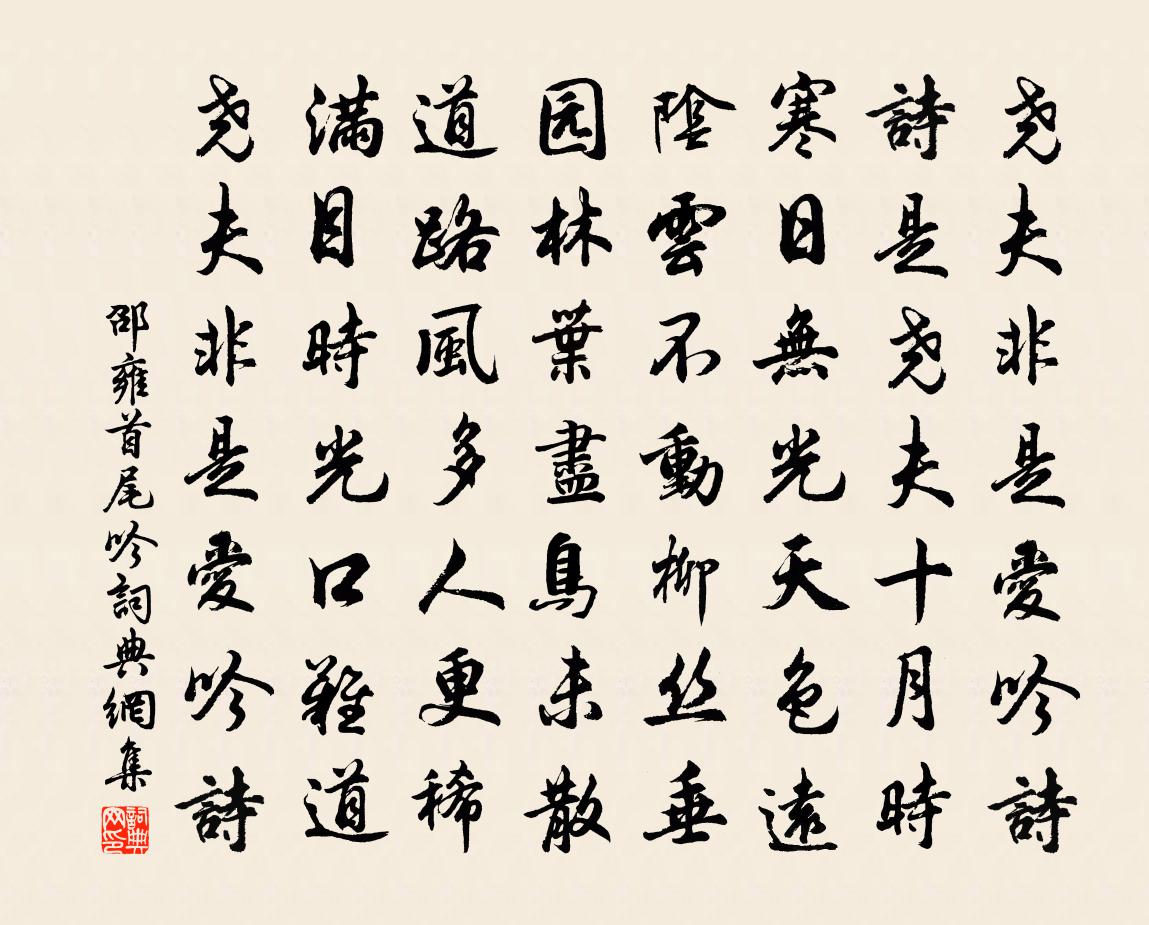 尧夫非是愛吟詩
詩是尧夫十月時
寒日無光天色遠
陰雲不動柳丝垂
园林葉盡鳥未散
道路風多人更稀
满目時光口難道
尧夫非是愛吟詩
邵雍首尾吟詞典網集
詞典
网印